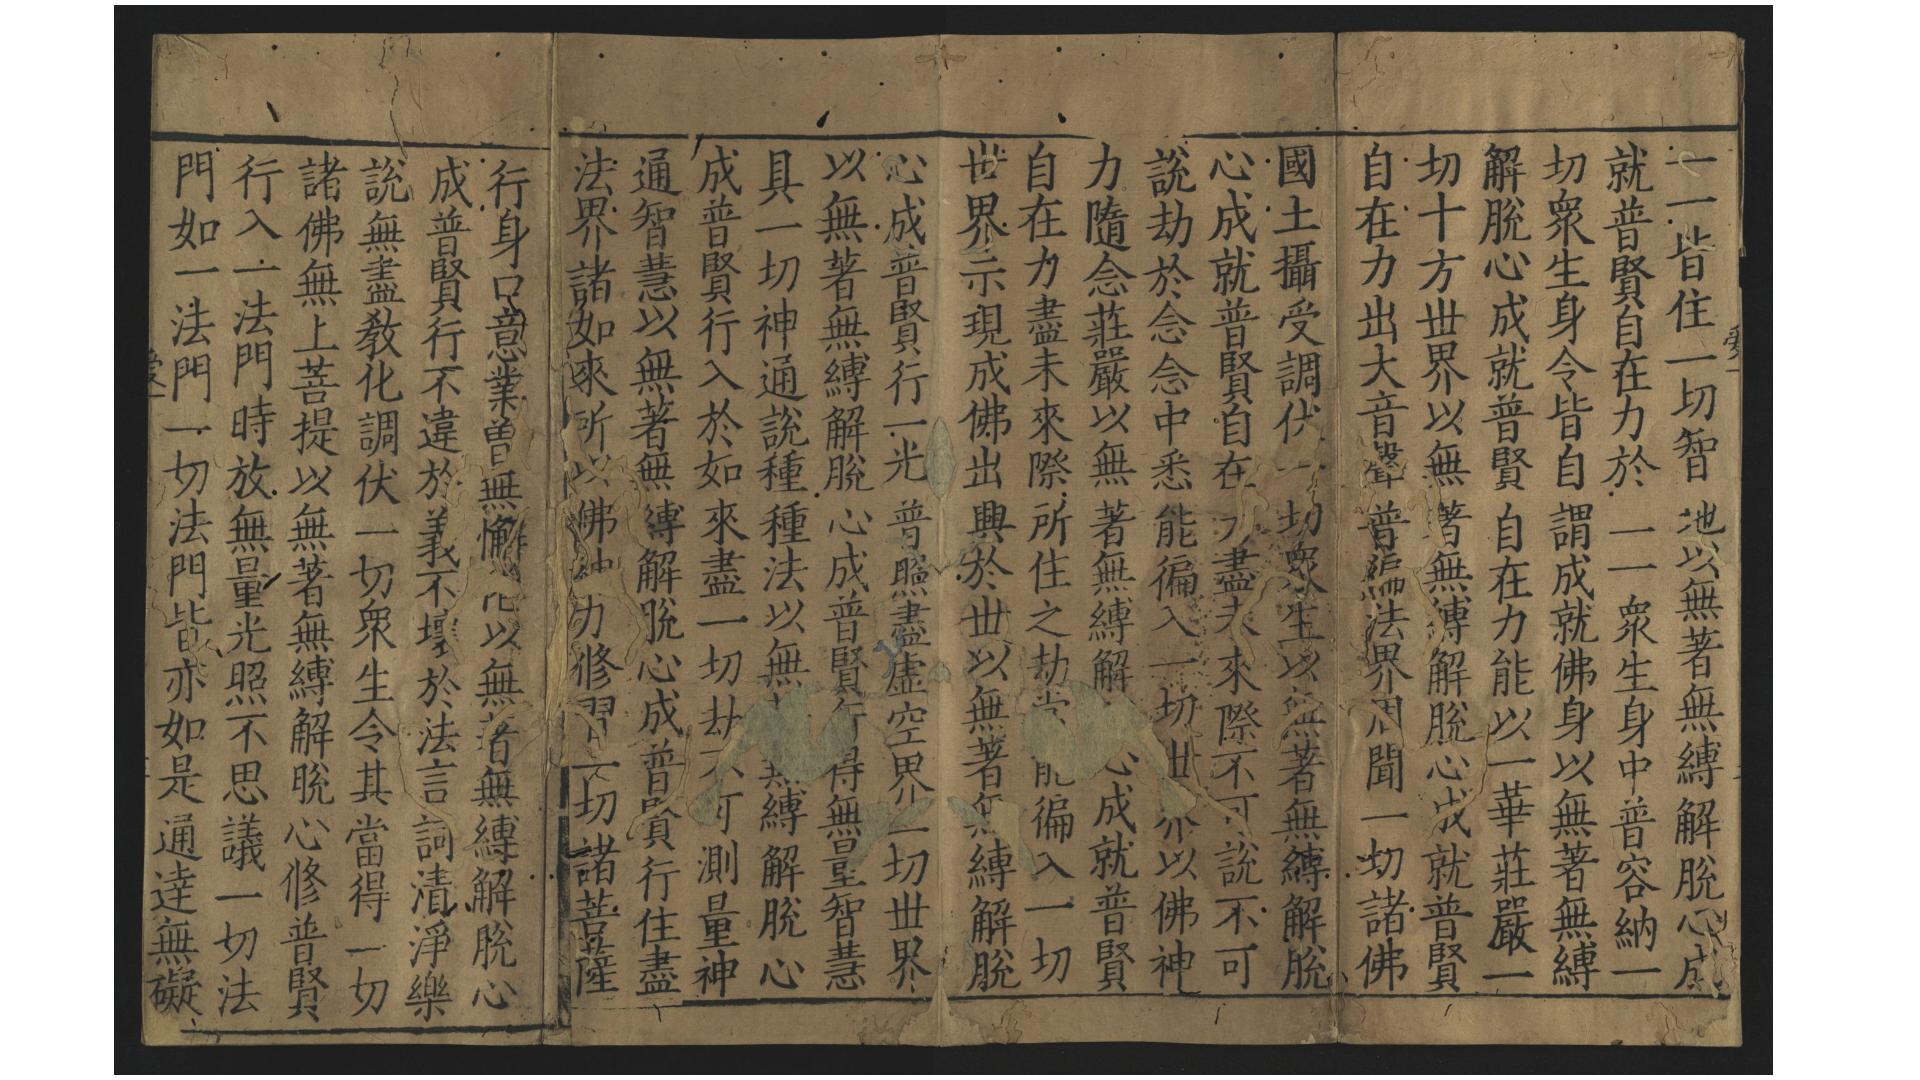 一一皆住一切智地以無著無縛解脫心成
就普賢自在力於一一衆生身中普容納一
切衆生身令皆自謂成就佛身以無著無縛
解脫心成就普賢自在力能以一華莊嚴一
切十方世界以無著無縛解脫心成就普賢
自在力出大音聲普徧法界周聞一切諸佛
國土攝受調伏一切衆生以無著無縛解脫
心成就普賢自在力盡未來際不可說不可
說劫於念念中悉能徧入一切世界以佛神
力隨念莊嚴以無著無縛解心成就普賢
自在力盡未來際所住之劫常能徧入一切
世界示現成佛出興於世以無著無縛解脫
心成普賢行一光普照盡虛空界一切世界
以無著無縛解脫心成普賢行得無量智慧
具一切神通說種種法以無著無縛解脫心
成普賢行入於如來盡一切劫不可測量神
通智慧以無著無縛解脫心成普賢行住盡
法界諸如來所以佛神力修習一切諸菩薩
行身口意業曾無懈以無著無縛解脫心
成普賢行不違於義不壞於法言詞清淨樂
說無盡教化調伏一切衆生令其當得一切
諸佛無上菩提以無著無縛解脫心修普賢
行入一法門時放無量光照不思議一切法
門如一法門一切法門皆亦如是通達無礙